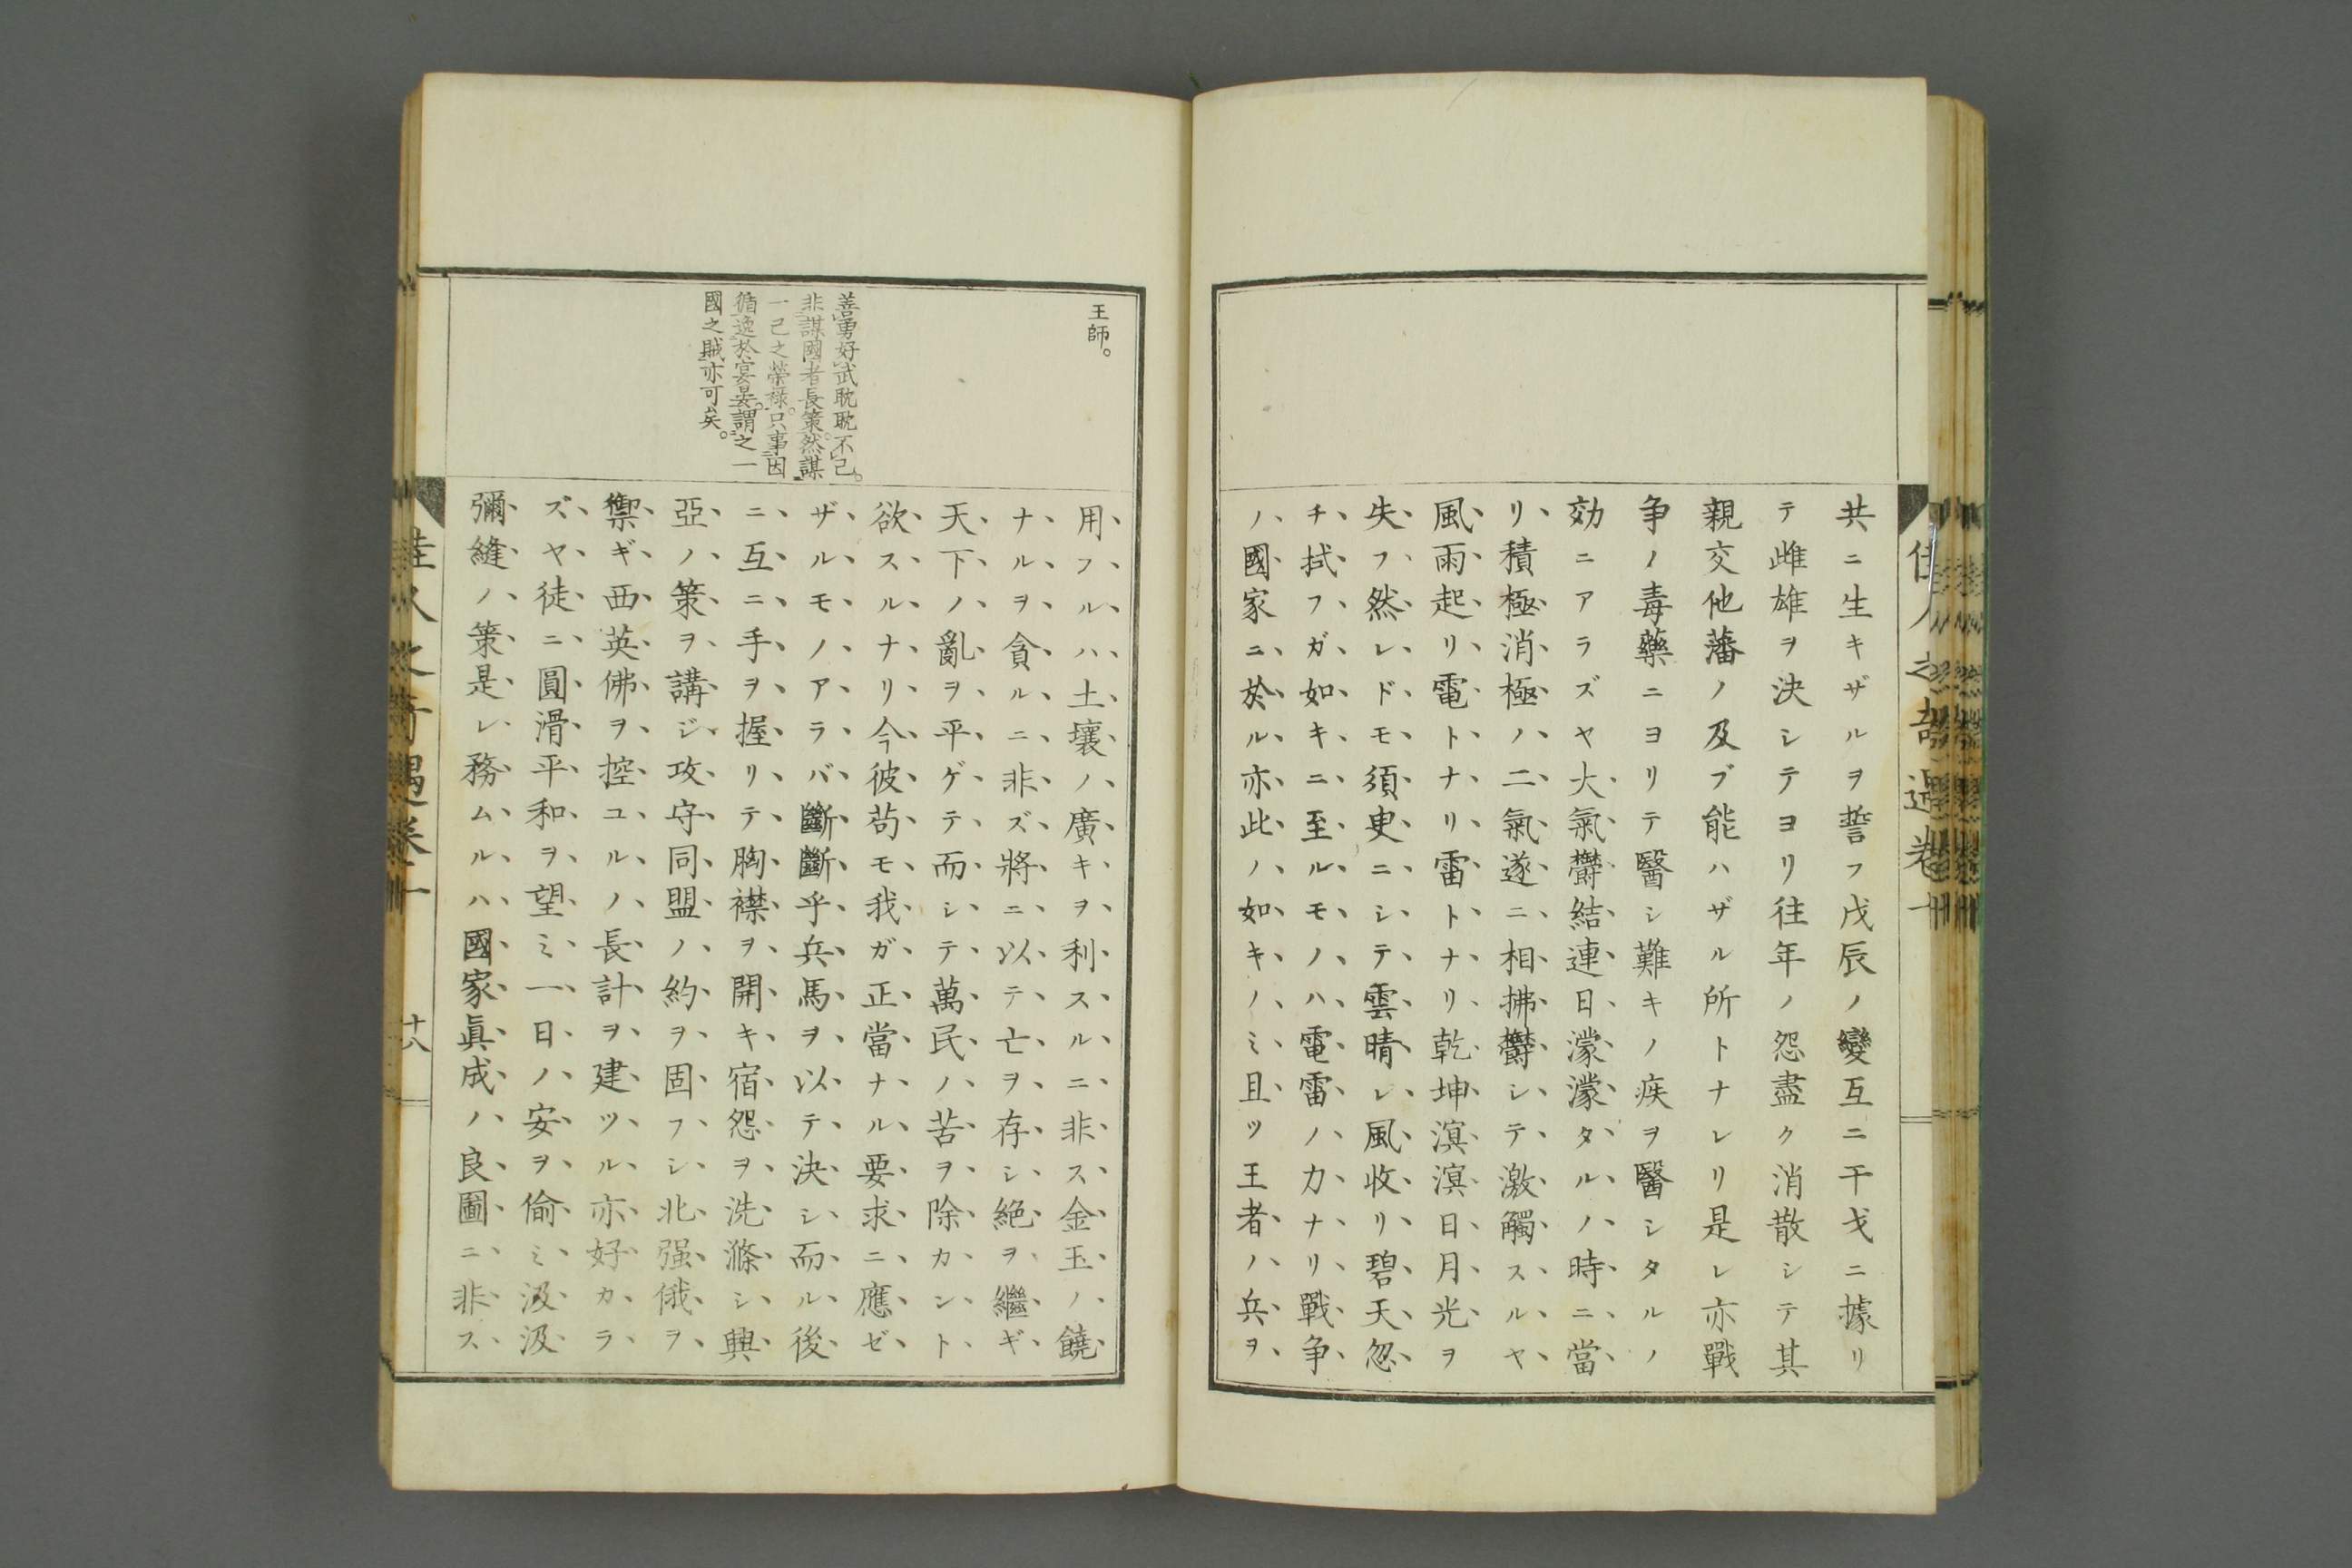 佳人之奇遇卷十
共ニ生キザルヲ誓フ戊辰ノ變互ニ干戈ニ據リ
テ雌雄ヲ決シテヨリ往年ノ怨盡ク消散シテ其
親交他藩ノ及ブ能ハザル所トナレリ是レ亦戰
争ノ毒藥ニヨリテ醫シ難キノ疾ヲ醫シタルノ
効ニアラズヤ大氣欝結連日濛濛タルノ時ニ當
リ積極消極ノ二氣遂ニ相拂欝シテ激觸スルヤ
風雨起リ電トナリ雷トナリ乾坤溟溟日月光ヲ
失フ然レドモ須臾ニシテ雲晴レ風收リ碧天忽
チ拭フガ如キニ至ルモノハ電雷ノ力ナリ戰争
ノ國家ニ於ル亦此ノ如キノミ且ツ王者ノ兵ヲ
王師。
用フルハ土壤ノ廣キヲ利スルニ非ス金玉ノ饒
ナルヲ貪ルニ非ズ將ニ以テ亡ヲ存シ絕ヲ繼ギ
天下ノ亂ヲ平ゲテ而シテ萬民ノ苦ヲ除カント
欲スルナリ今彼苟モ我ガ正當ナル要求ニ應ゼ
ザルモノアラバ斷斷乎兵馬ヲ以テ決シ而ル後
ニ互ニ手ヲ握リテ胸襟ヲ開キ宿怨ヲ洗滌シ興
亞ノ策ヲ講ジ攻守同盟ノ約ヲ固フシ北强俄ヲ
禦ギ西英佛ヲ控ユルノ長計ヲ建ツル亦好カラ
ズヤ徒ニ圓滑平和ヲ望ミ一日ノ安ヲ偷ミ汲汲
彌縫ノ策是レ務ムルハ國家眞成ノ良圖ニ非ス
善勇好武耽耽不已。
非謀國者長策。然謀
一己之榮祿。只事因
循逸於宴晏。謂之一
國之賊亦可矣。
佳人之奇遇卷十
十八